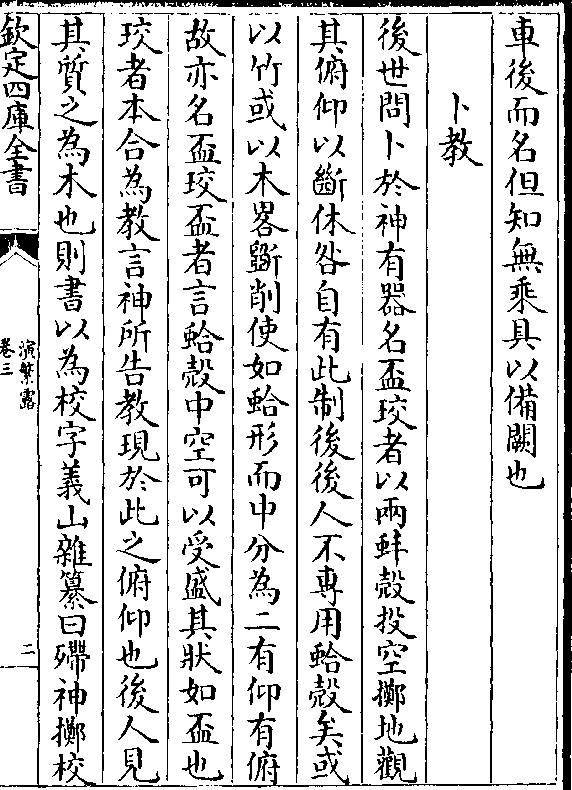 車後而名但知無乘具以備闕也
卜教
後世問卜於神有器名盃珓者以兩蚌殼投空擲地觀
其俯仰以斷休咎自有此制後後人不專用蛤殼矣或
以竹或以木畧斵削使如蛤形而中分為二有仰有俯
故亦名盃珓盃者言蛤殼中空可以受盛其狀如盃也
珓者本合為教言神所告教現於此之俯仰也後人見
其質之為木也則書以為校字義山雜纂曰殢神擲校
欽定四庫全書
演繁露
卷三
二